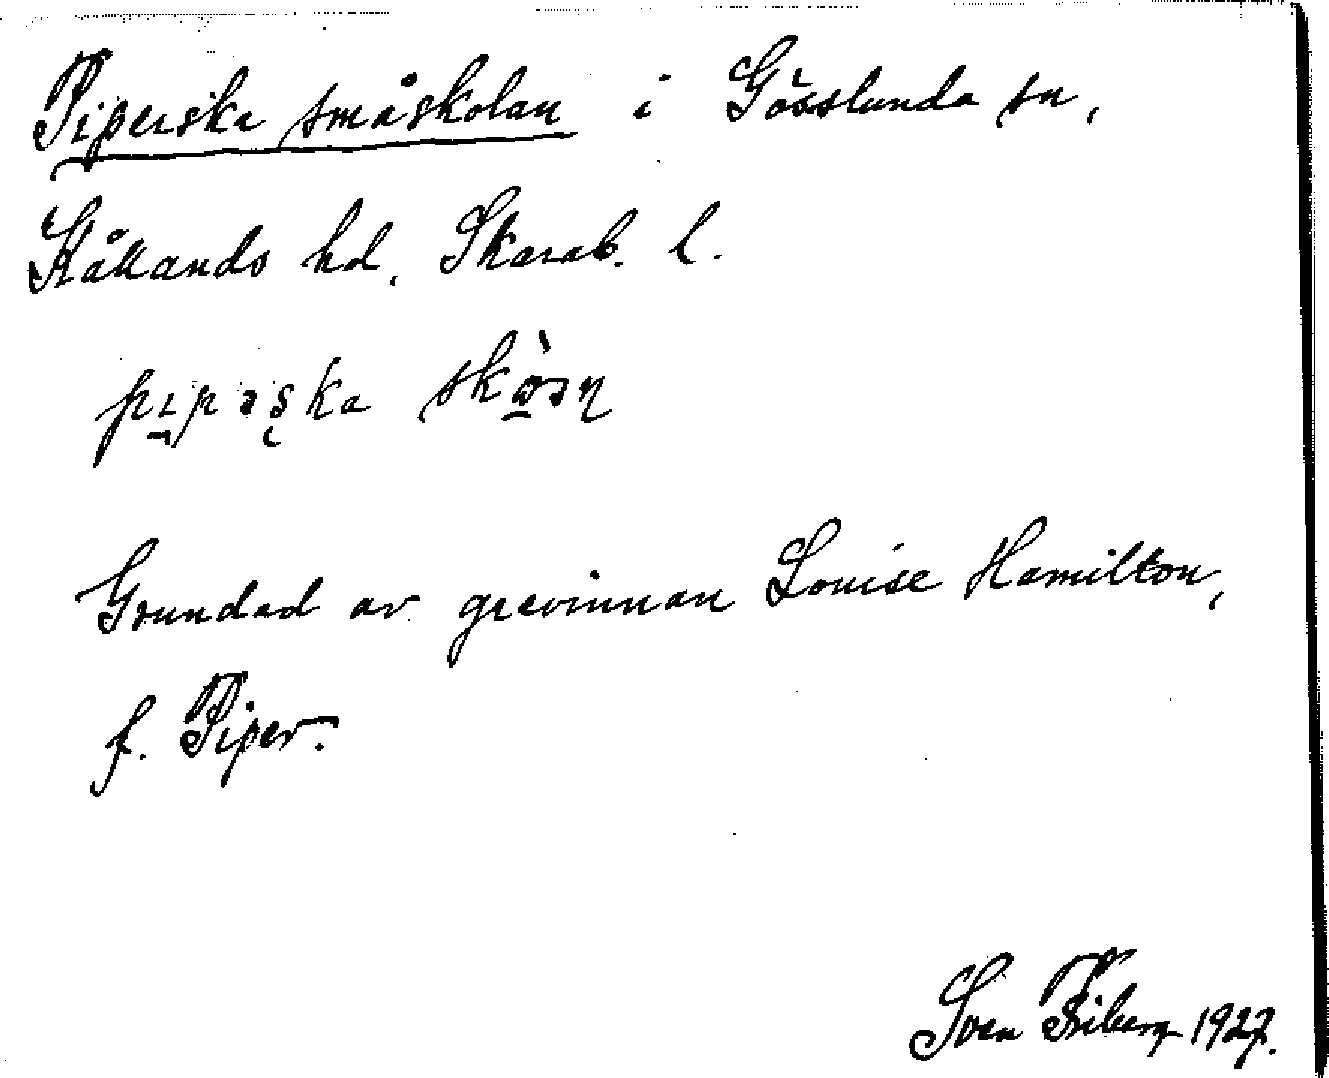 Piperska småskolan i Gösslunda sn,
Kållands hd. Skarab. l.
Grundad av grevinnan Louise Hamilton,
f. Piper.
Sven Friberg 1927.